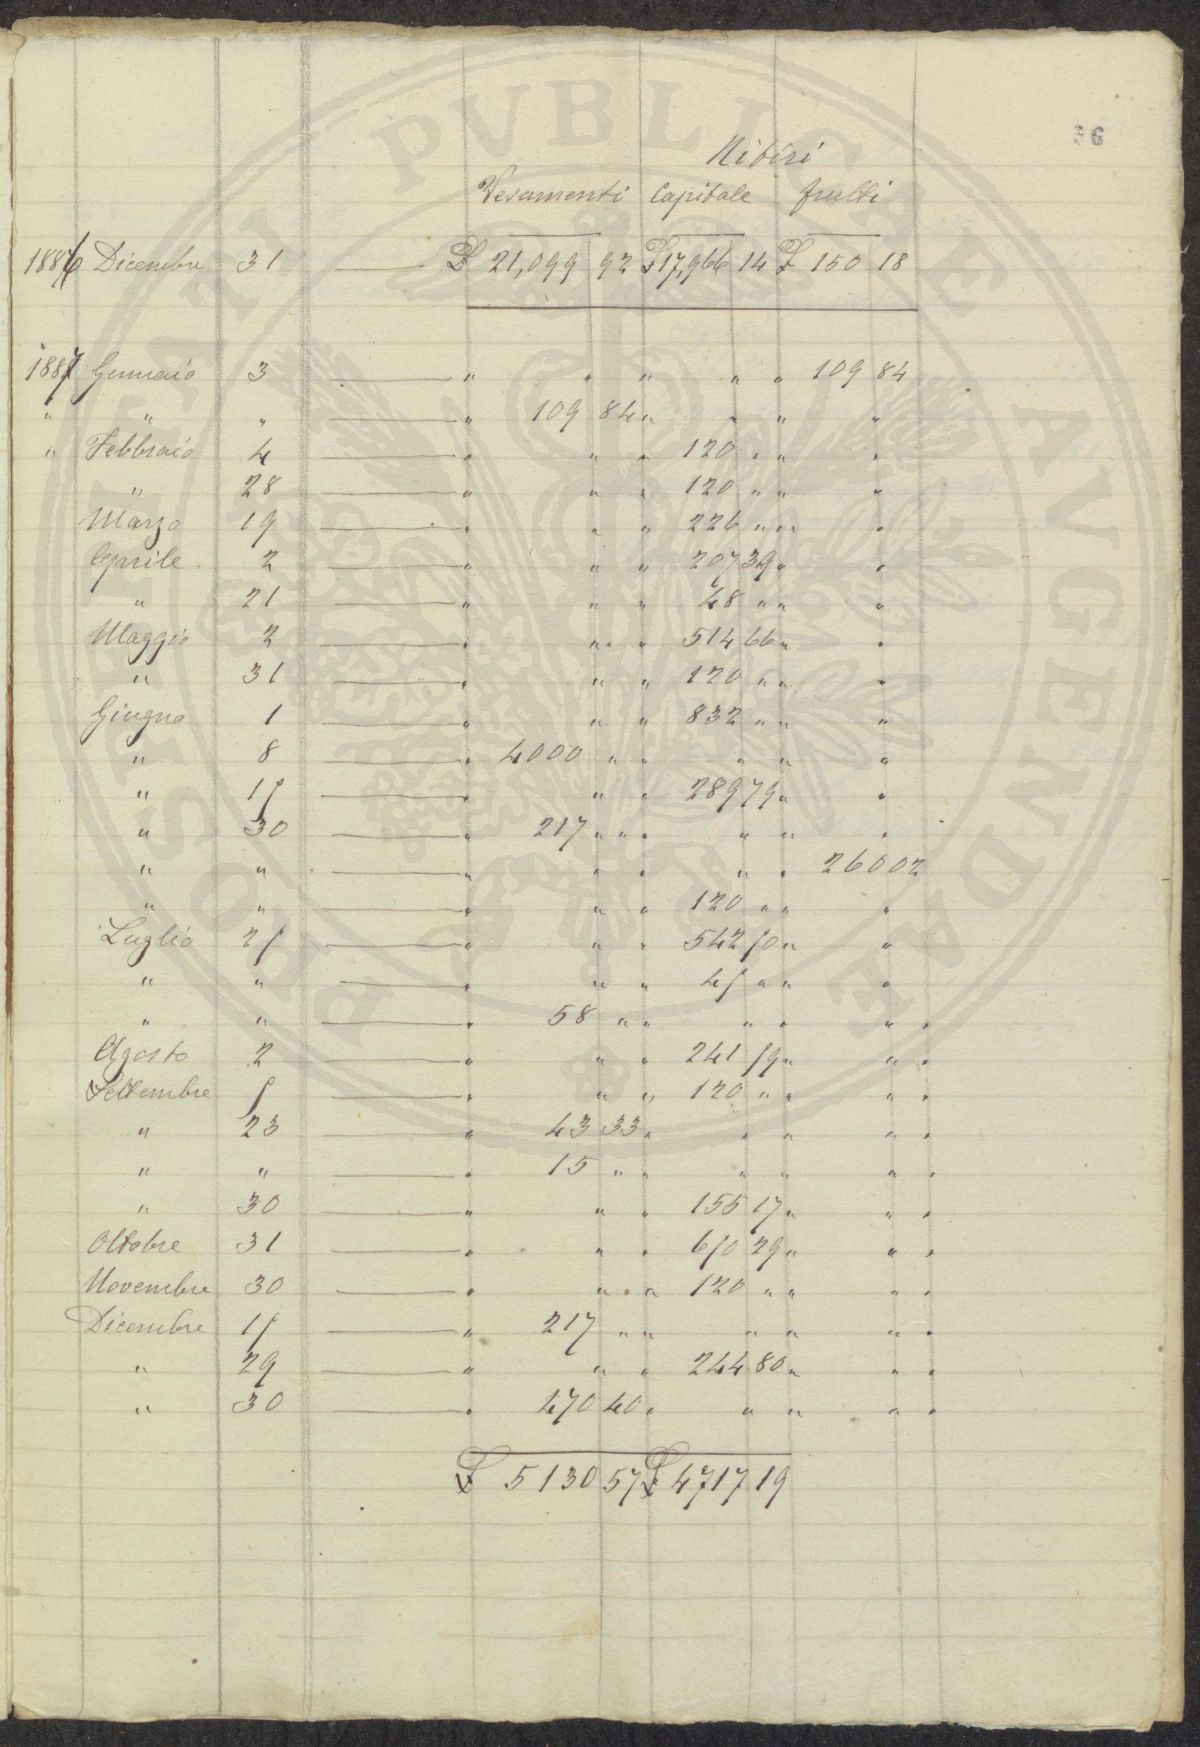 36
Ritiri
Versamenti Capitale frutti
1886 Dicembre 31 £ 21,099 92 £ 17,966 14 £ 150 18
1887 Gennaio 3 " " " " " 109 84
" " " " 109 84 " " " "
" Febbraio 4 " " " 120 " " "
" 28 " " " 120 " " "
Marzo 19 " " " 226 " " "
Aprile 2 " " " 207 39 " "
" 21 " " " 48 " " "
Maggio 2 " " " 514 66 " "
" 31 " " " 120 " " "
Giugno 1 " " " 832 " " "
" 8 " 4000 " " " " "
" 15 " " " 289 79 " "
" 30 " 217 " " " " "
" " " " " " " 260 02
" " " " " 120 " " "
Luglio 25 " " " 542 50 " "
" " " " " 45 " " "
" " " 58 " " " " " "
Agosto 2 " " " 241 59 " " "
Settembre 5 " " " 120 " " " "
" 23 " 43 33 " " " " "
" " " 15 " " " " " "
" 30 " " " 155 17 " " "
Ottobre 31 " " " 650 29 " " "
Novembre 30 " " " 120 " " " "
Dicembre 15 " 217 " " " " " "
" 29 " " " 244 80 " " "
" 30 " 470 40 " " " " "
£ 5130 57 £ 4717 19
PROSPERITATI PVBLICAE AVGENDAE